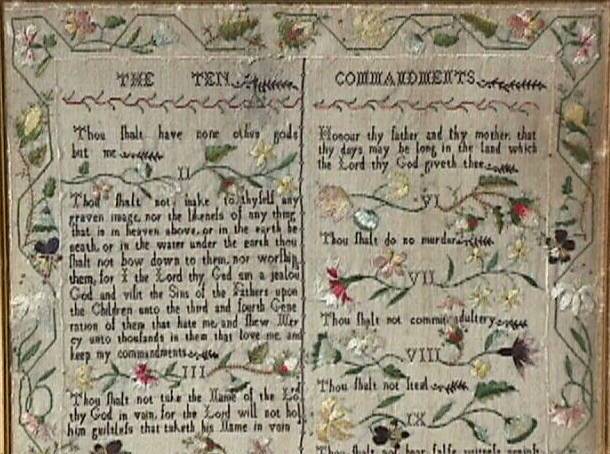 THE TEN
Thou shalt have none other gods
but me
II
Thou shalt not make to thyself any
graven image, nor the likeness of any thing
that is in heaven above, or in the earth be
neath, or in the water under the earth thou
shalt not bow down to them, nor worship
them, for I the Lord thy God am a jealou
God and visit the Sins of the Fathers upon
the Children unto the third and fourth Gene
ration of them that hate me, and shew Mer
cy unto thousands in them that love me, and
keep my commandments
III
Thou shalt not take the Name of the Lo
thy God in vain, for the Lord will not hol
him guiltless that taketh his Name in vain
COMMANDMENTS
Honour thy father and thy mother, that
thy days may be long in the land which
the Lord thy God giveth thee
VI
Thou shalt do no murder
VII
Thou shalt not commit adultery
VIII
Thou shalt not steal
IX
Thou shalt not bear false witness against